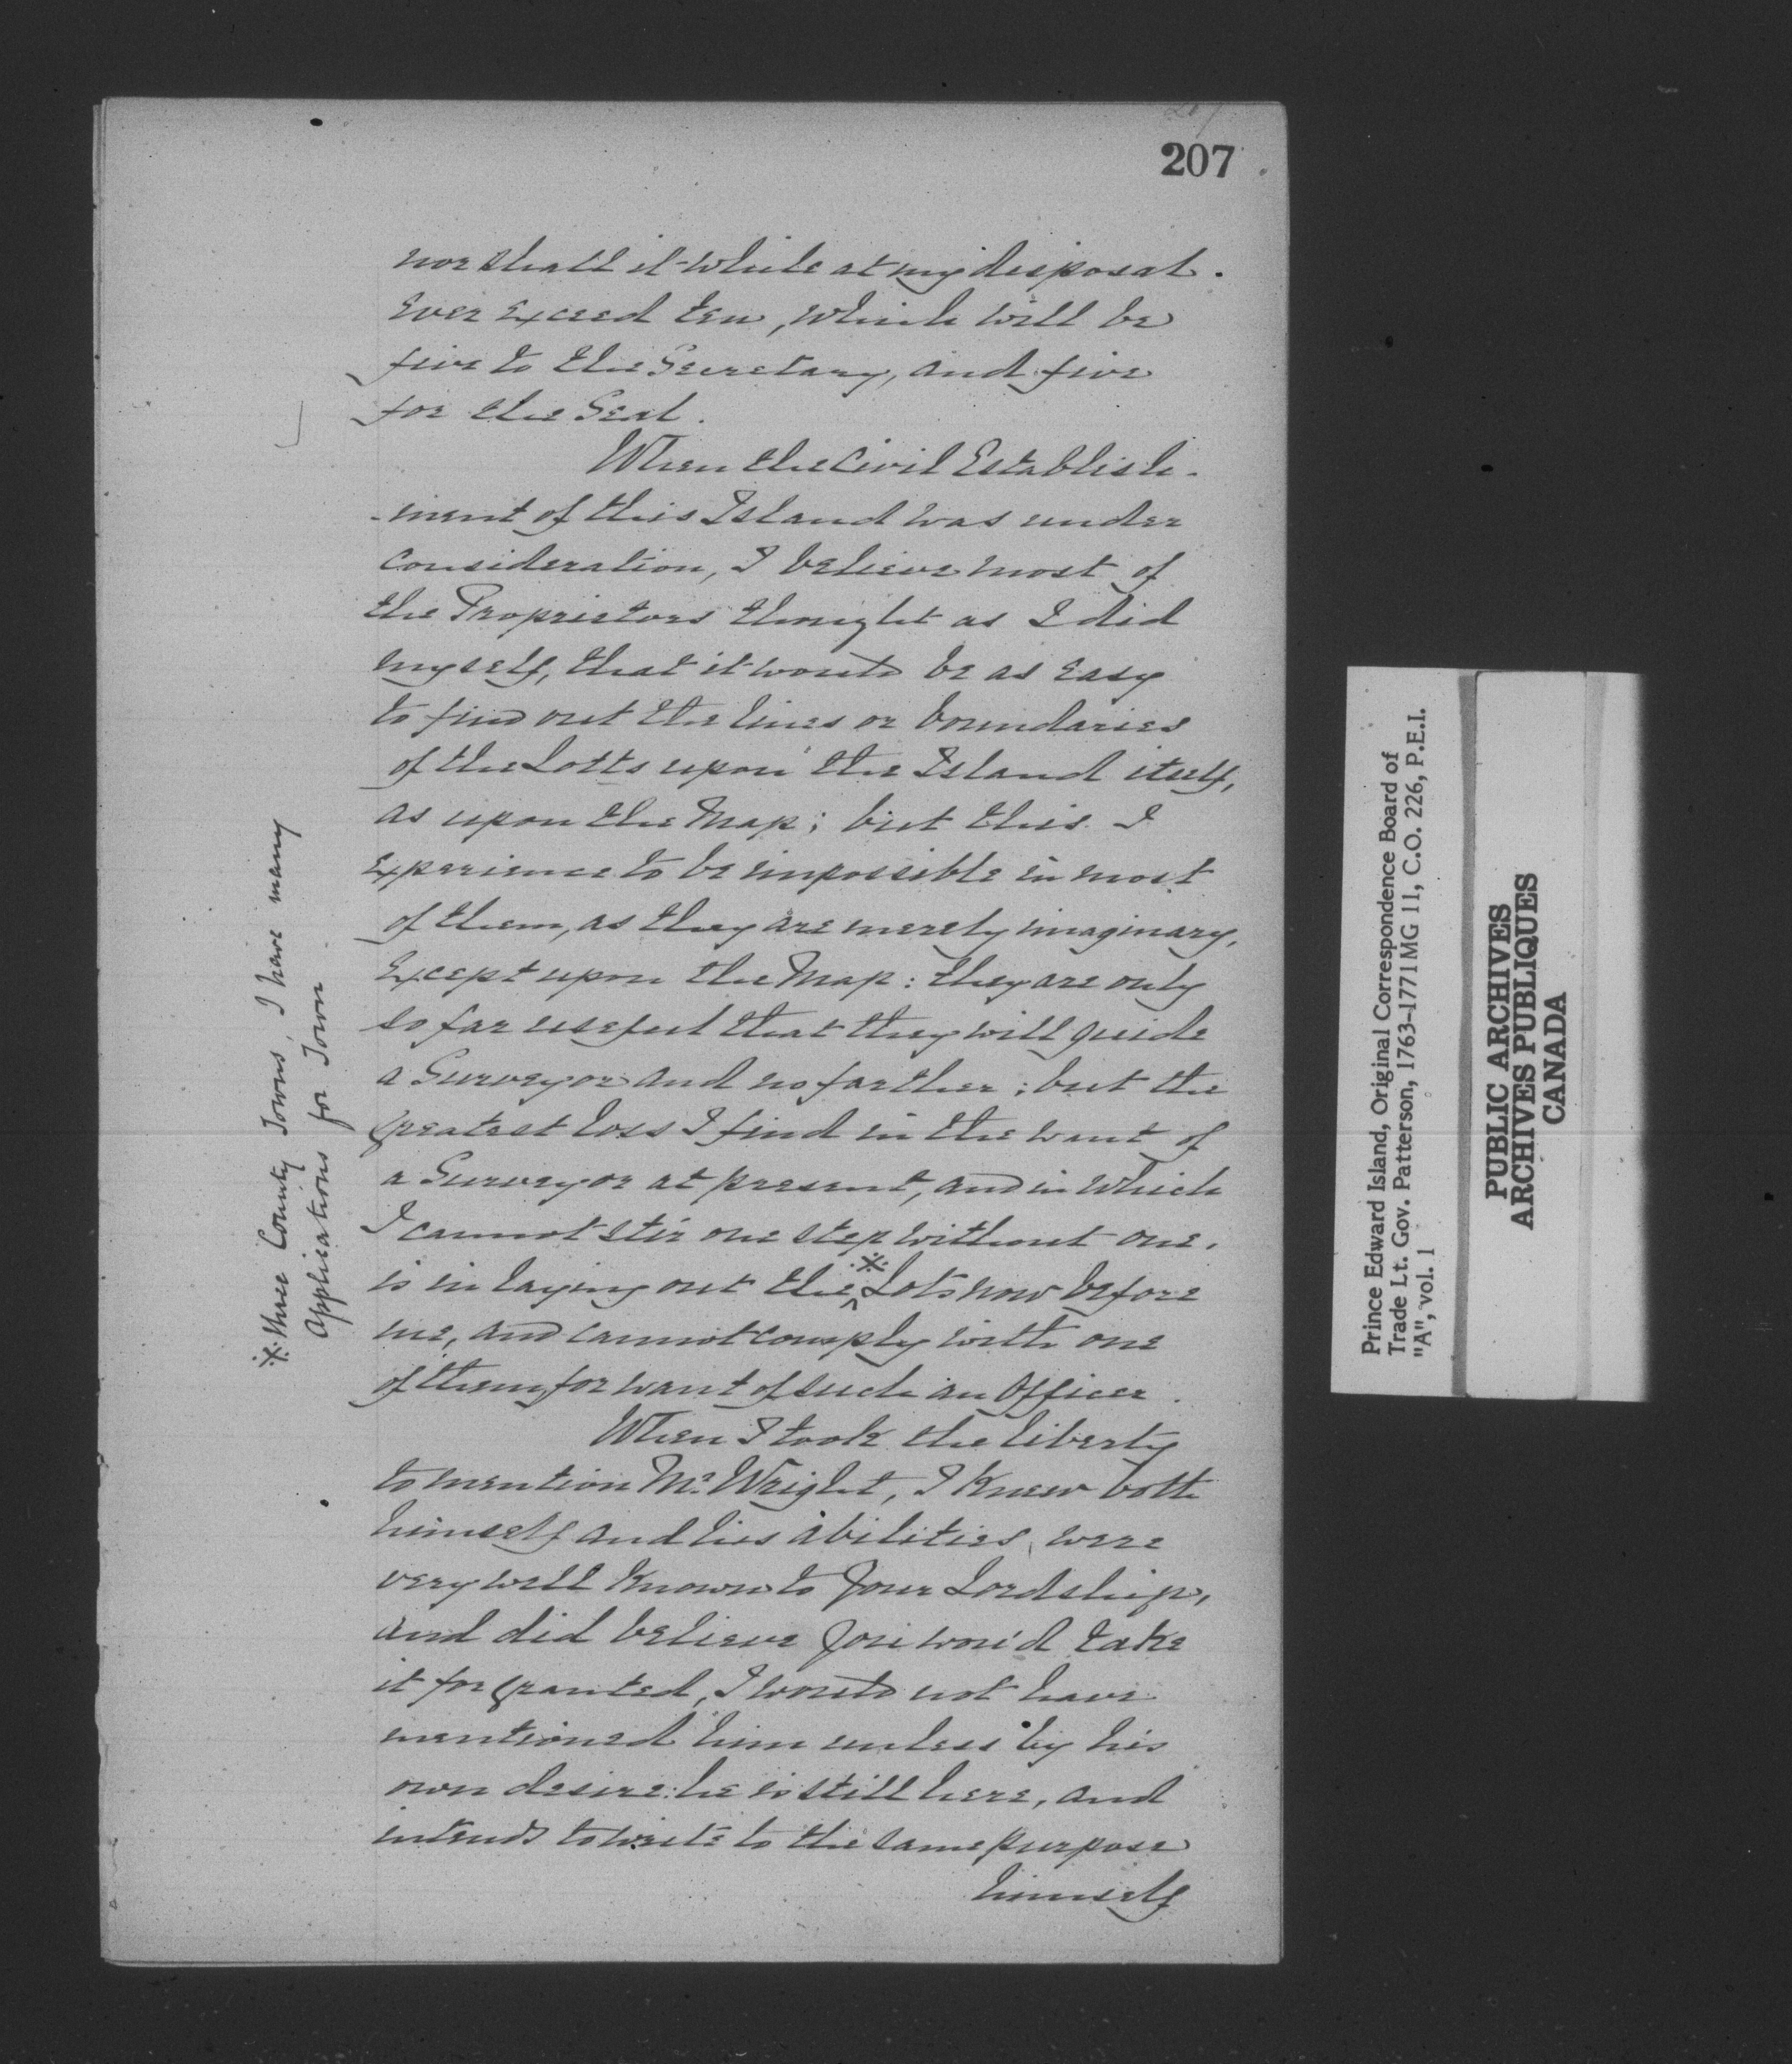 207
nor shall it while at my disposal.
Ever Exceed ten, which will be
five to the Secretary, and five
for the Seal.
When the Civil Establish-
-ment of this Island was under
Consideration, I believe most of
the Proprietors thought as I did
myself, that it would be as Easy
to find out the lines or boundaries
of the Lotts upon the Island itself,
as upon the Map; but this I
Experience to be impossible in most
of them, as they are merely imaginary,
Except upon the Map: they are only
so far useful that they will guide
a Surveyor and no farther; but the
greatest loss I find in the want of
a Surveyor at present, and in which
I cannot stir one step without one,
is in laying out the ※ Lots now before
me, and cannot comply with one
of them for want of such an Officer.
When I took the liberty
to mention Mr. Wright, I Knew both
himself and his abilities were
very well Known to Your Lordship,
and did believe You wou'd take
it for granted, I would not have
mentioned him unless by his
own desire: he is still here, and
intends to write to the same purpose
himself
※ three County Towns, I have many
Applications for Town
Prince Edward Island, Original Correspondence Board of
Trade Lt. Gov. Patterson, 1763-1771 MG 11, C.O. 226, P.E.I.
"A", vol. 1
PUBLIC ARCHIVES
ARCHIVES PUBLIQUES
CANADA